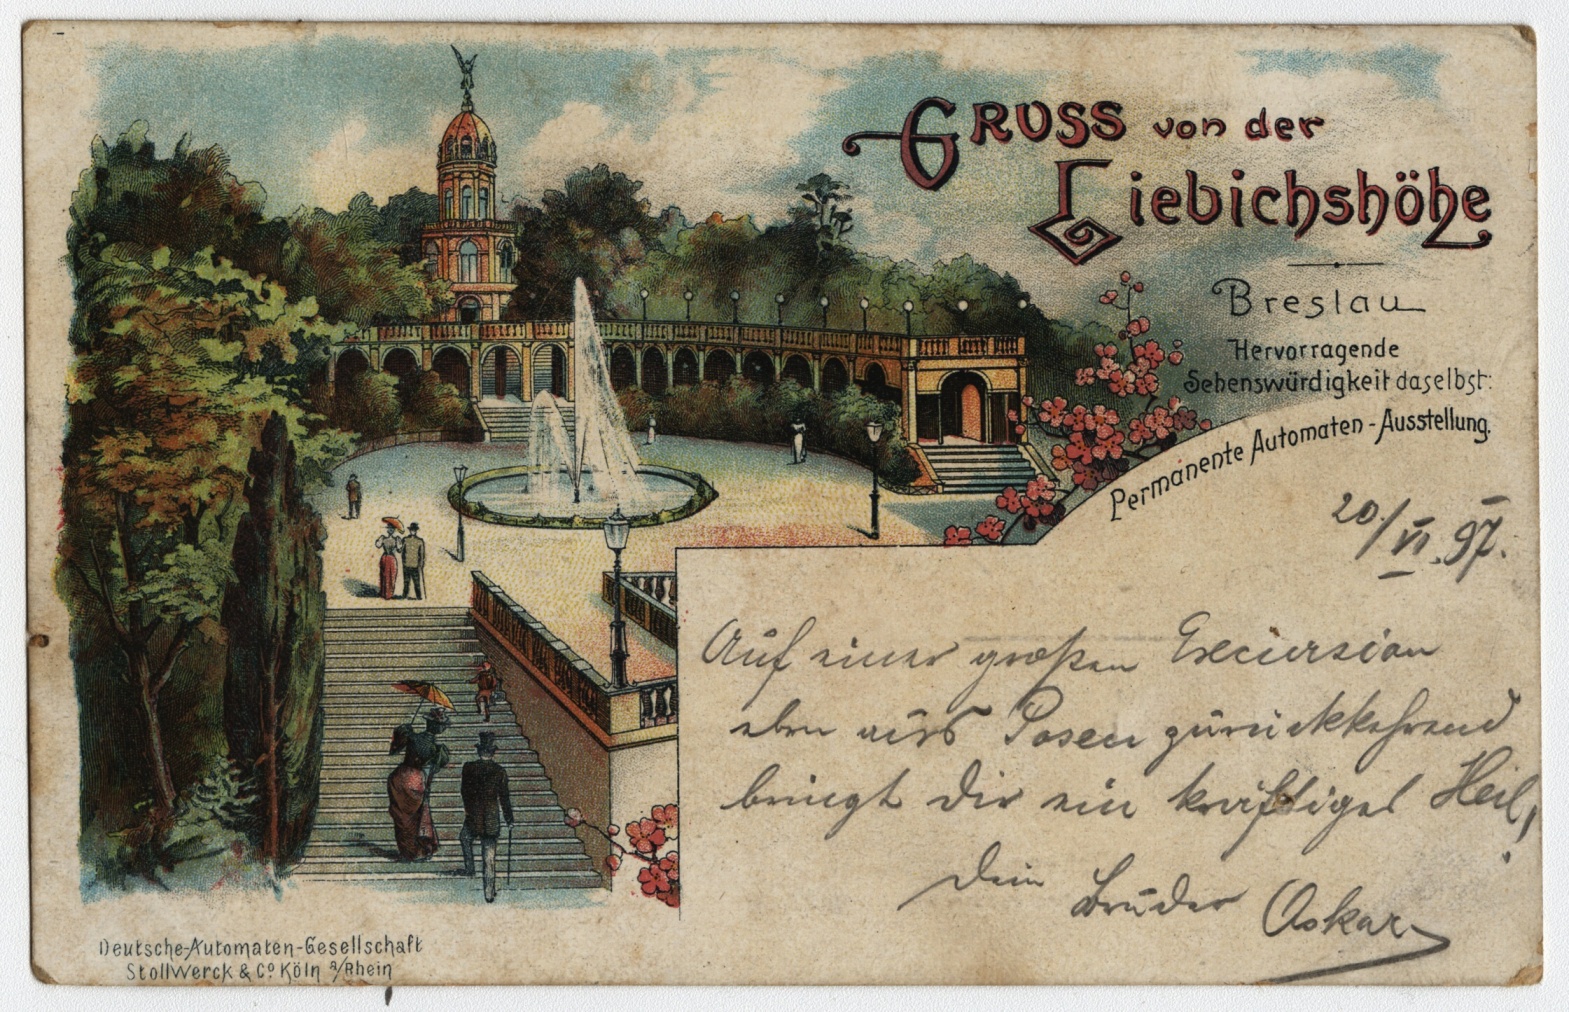 Gruss von der
Liebichshöhe
Breslau
Hervorragende
Sehenswürdigkeit daselbst:
Permanente Automaten-Ausstellung.
20./VI. 97.
Auf einer großen Excursion
eben aus Posen zurückkehrend
bringt Dir ein kräftiges Heil!
Dein Bruder Oskar
Deutsche-Automaten-Gesellschaft
Stollwerck & Co Köln a/Rhein